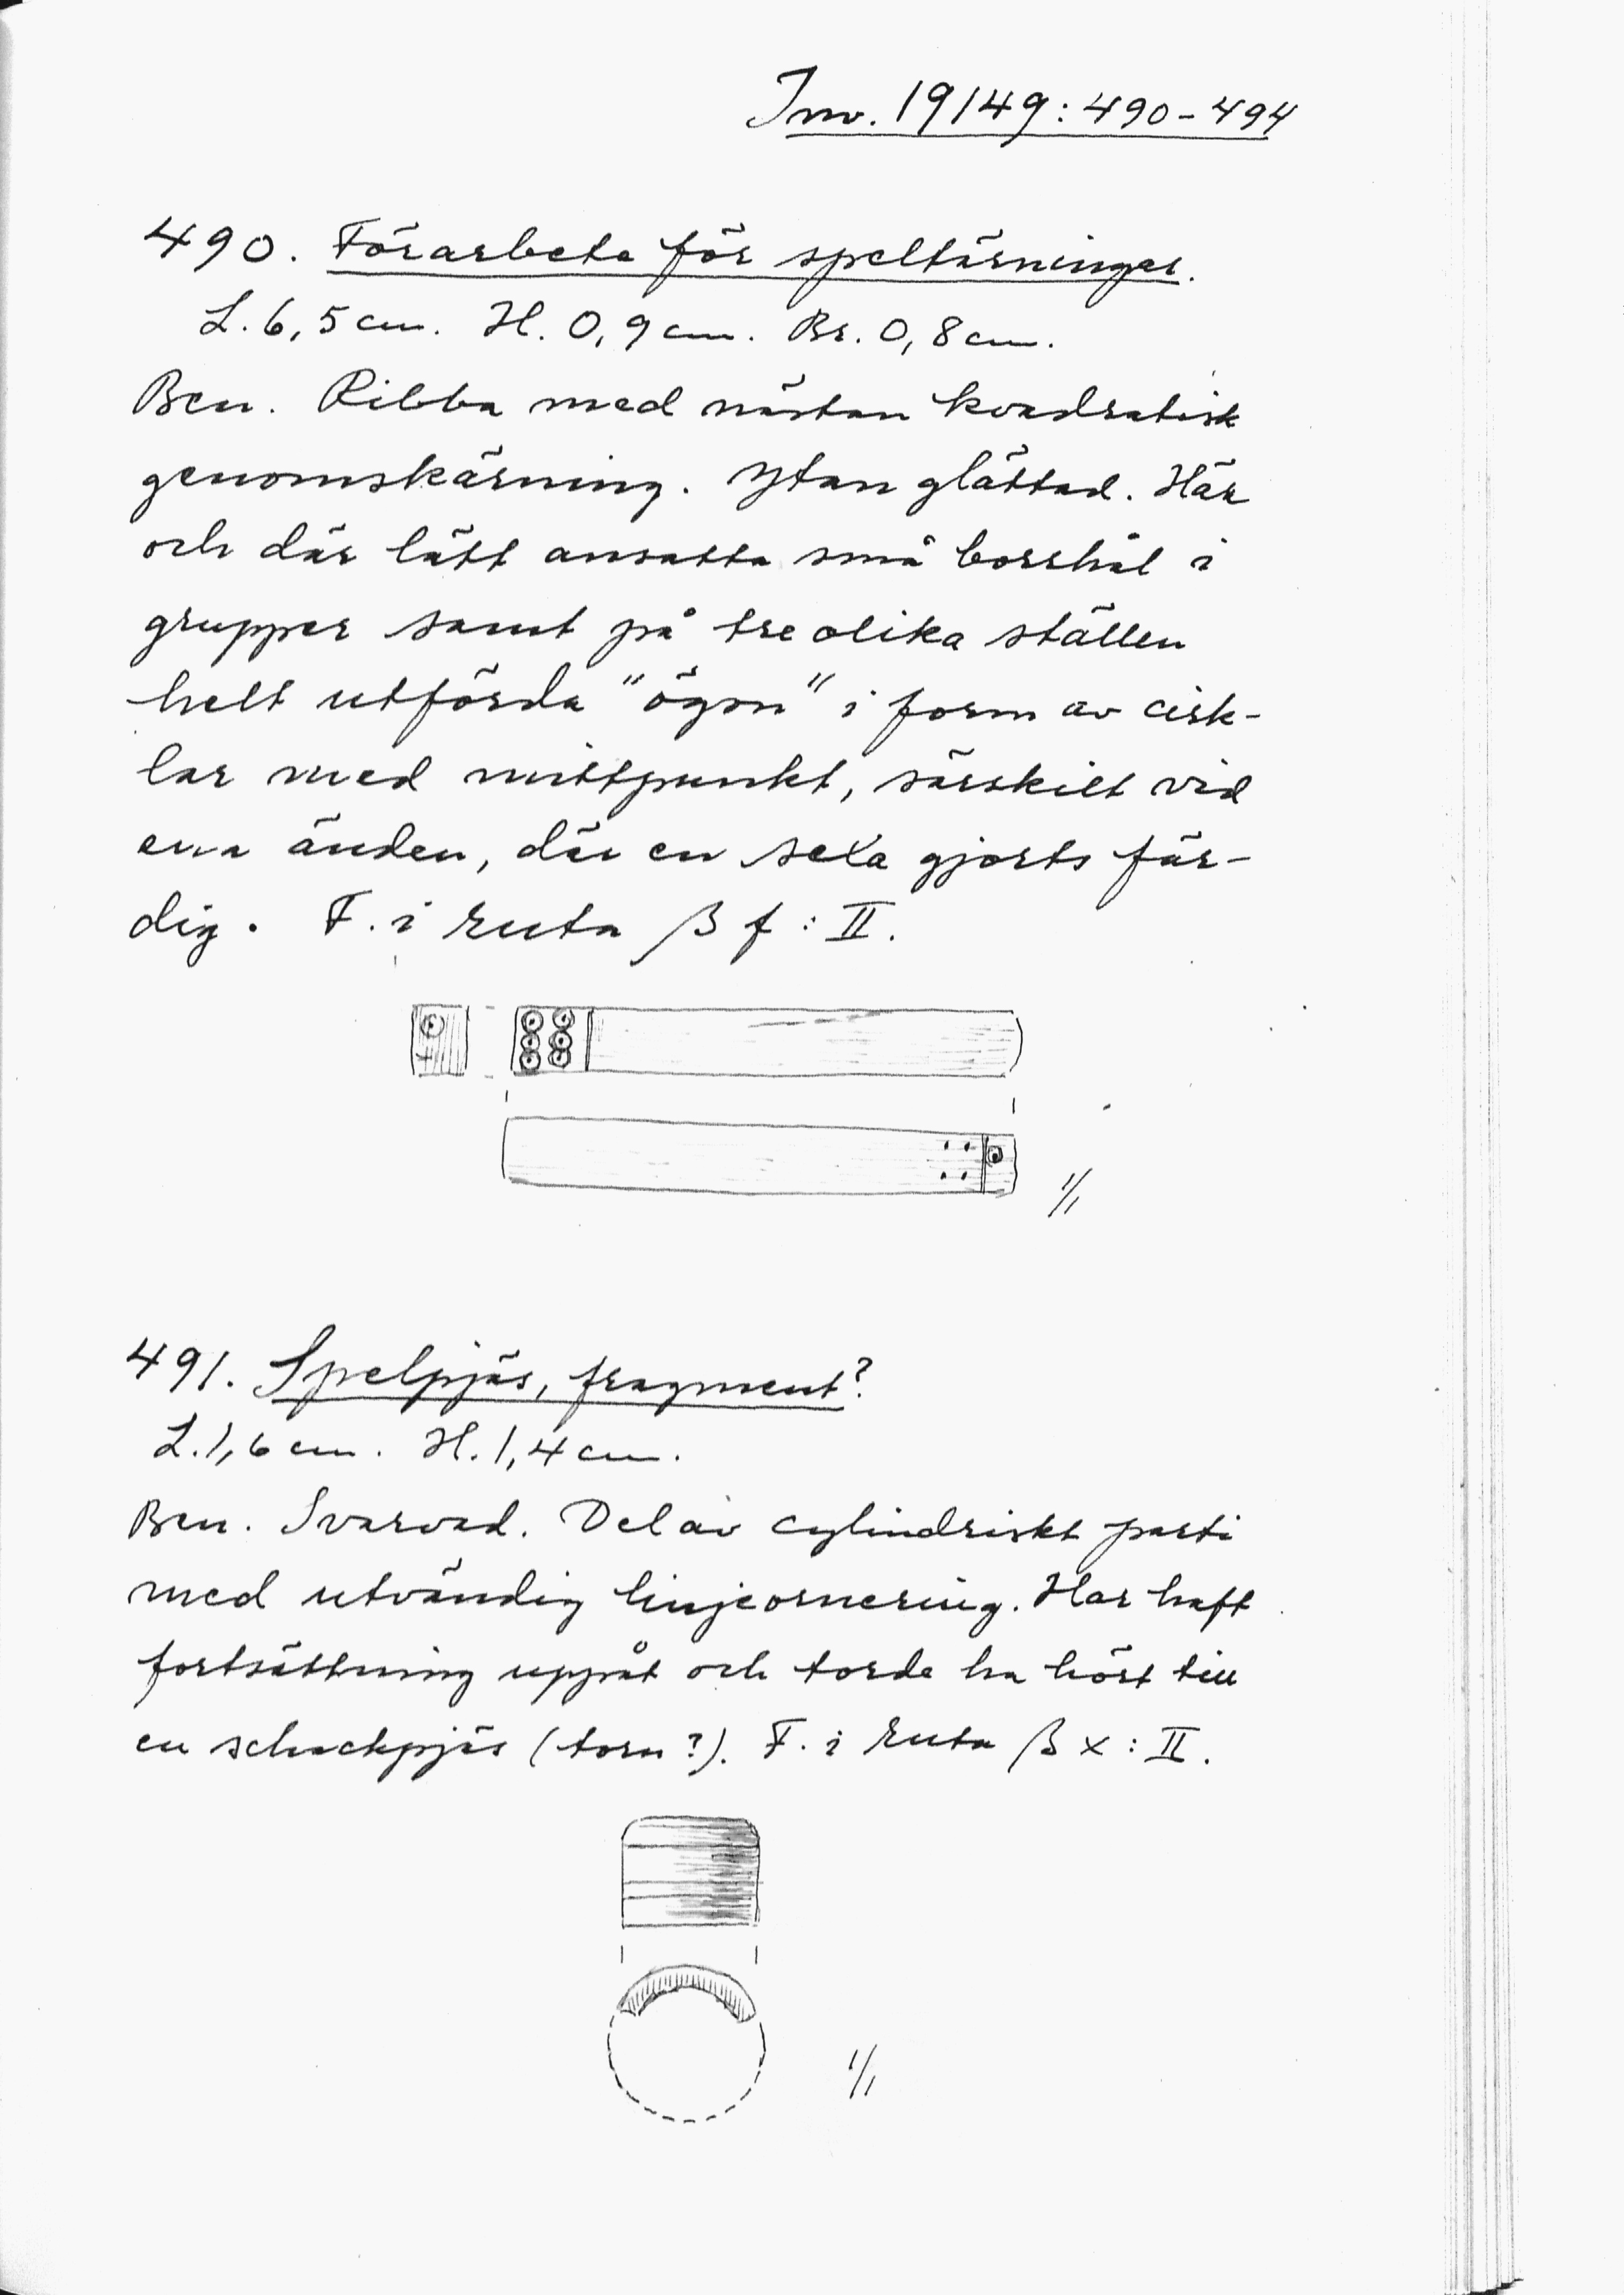 Inv. 19149:490-494
490. Förarbete för speltärningar.
L. 6,5 cm. H. 0,9 cm. Br. 0,8 cm.
Ben. Ribba med nästan kvadratisk
genomskärning. Ytan glättad. Här
och där lätt ansatta små borrhål i
grupper samt på tre olika ställen
helt utförda "ögon" i form av cirk-
lar med mittpunkt, särskilt vid
ena änden, där en sexa gjorts fär-
dig. F. i ruta β f : II.
1/1
491. Spelpjäs, fragment?
L. 1,6 cm. H. 1,4 cm.
Ben. Svarvad. Del av cylindriskt parti
med utvändig linjeornering. Har haft
fortsättning uppåt och torde ha hört till
en schackpjäs (torn?). F. i ruta β x : II.
1/1